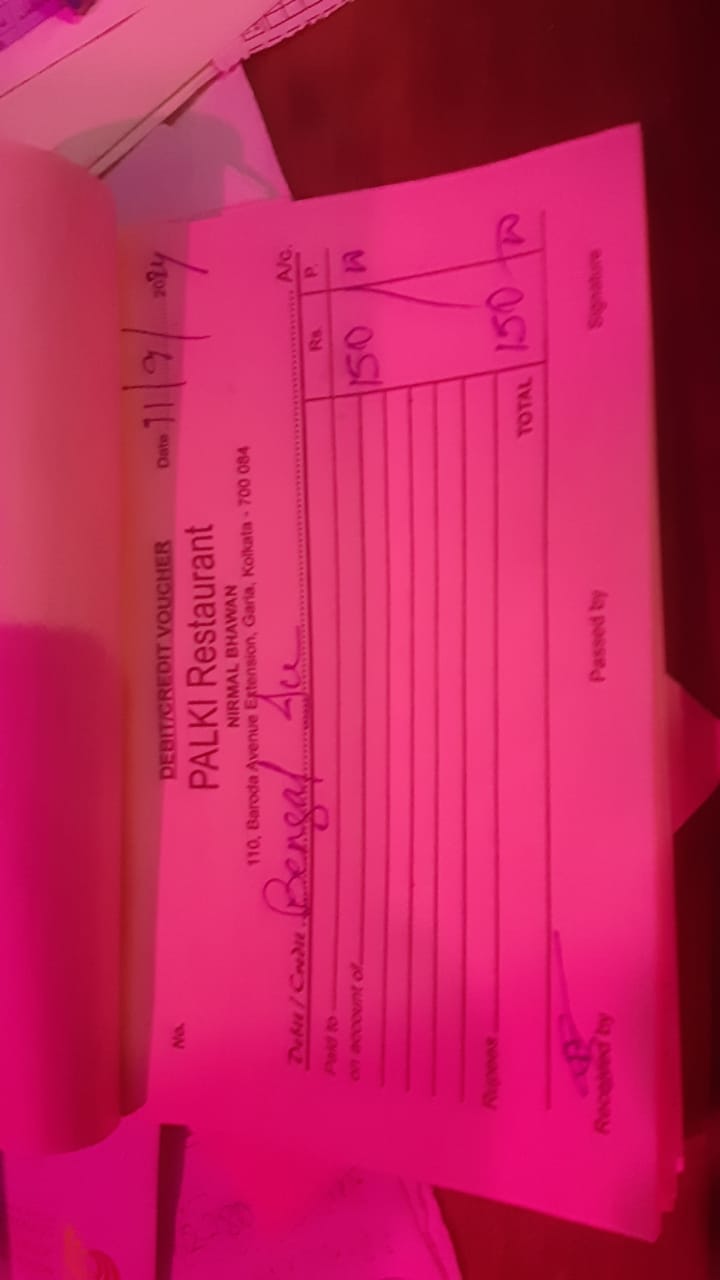 DEBIT/CREDIT VOUCHER
No. Date 11/9/2024
PALKI Restaurant
NIRMAL BHAWAN
110, Baroda Avenue Extension, Garia, Kolkata - 700 084
Debit / Credit Bengal A/c.
Paid to Rs. P.
on account of 150
Rupees TOTAL 150
Received by Passed by Signature